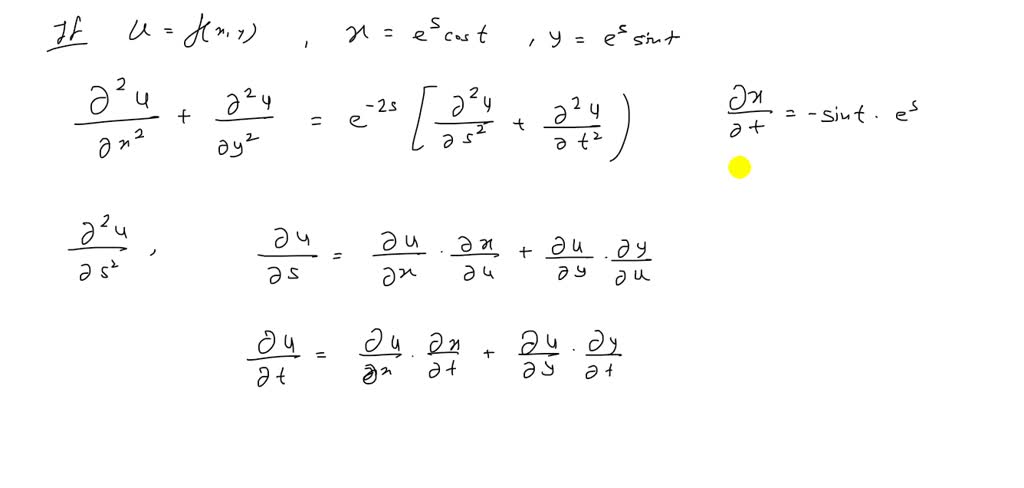 If u = f(x, y) , x = e^s cos t , y = e^s sin t
∂²u/∂x² + ∂²u/∂y² = e^{-2s} [ ∂²u/∂s² + ∂²u/∂t² )
∂x/∂t = -sin t · e^s
∂²u/∂s² , ∂u/∂s = ∂u/∂x · ∂x/∂u + ∂u/∂y · ∂y/∂u
∂u/∂t = ∂u/∂x · ∂x/∂t + ∂u/∂y · ∂y/∂t